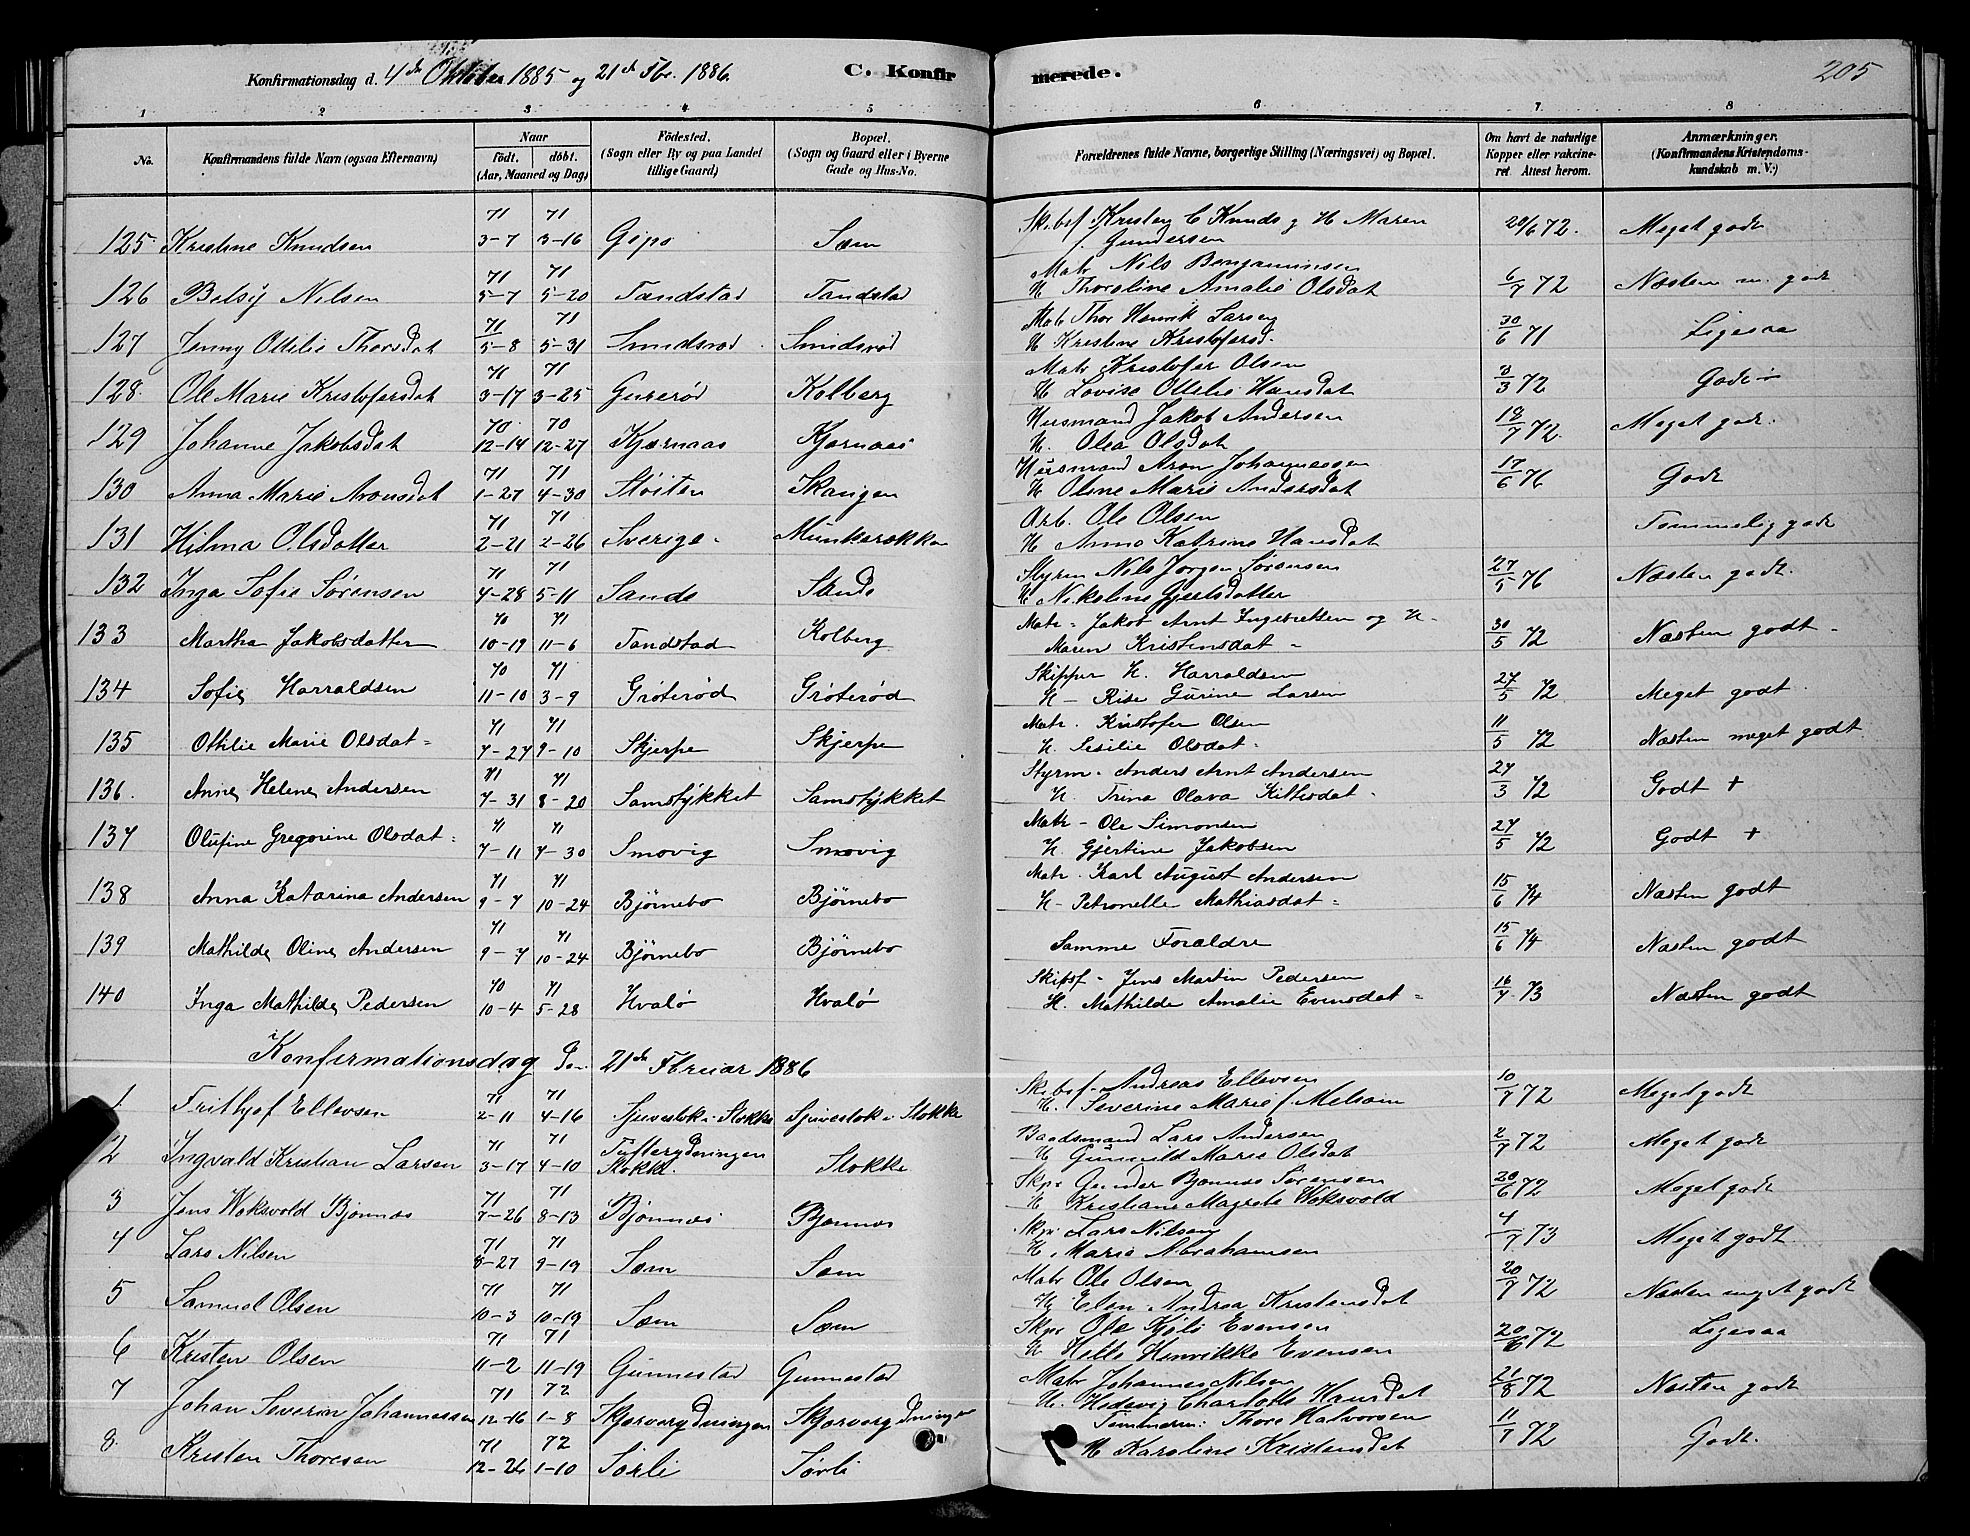 Konfirmationsdag d. 4de Oktober 1885 og 21de Fbr. 1886.
C. Konfirmerede.
205
1 2 3 4 5 6 7 8
No.
Konfirmandens fulde Navn (ogsaa Efternavn)
Naar
födt. döbt.
(Aar, Maaned og Dag)
Födested.
(Sogn eller By og paa Landet tillige Gaard)
Bopæl.
(Sogn og Gaard eller i Byerne Gade og Hus-No.
Forældrenes fulde Navne, borgerlige Stilling (Næringsvei) og Bopæl.
Om havt de naturlige Kopper eller vakcineret. Attest herom.
Anmærkninger.
(Konfirmandens Kristendomskundskab m. V.)
125 Kristine Knudsen 71 3-7 71 3-16 Gipø Sæm Skibsf Kristen C Knuds g H Maren Gundersen 20/6 72. Meget godt
126 Betsy Nilsen 71 5-7 71 5-20 Tandstad Tandstad Matr Nils Benjaminsen H Thoraline Amalie Olsdat 6/7 72 Næsten m. godt
127 Jenny Ottilie Thorsdat 71 5-8 71 5-31 Smidsrød Smidsrød Matr Thor Henrik Larsen H Kristine Kristofersd. 30/6 71 Ligesaa
128. Ole Marie Kristofersdat 71 3-17 71 3-25 Gurerød Kolberg Matr Kristofer Olsen H Lovise Ottilie Hansdat 8/3 72 Godt
129 Johanne Jakobsdat 70 12-14 70 12-27 Kjærnaas Kjærnaas Husmand Jakob Andersen H. Olea Olsdat 18/7 72. Meget godt.
130 Anna Marie Aronsdat 71 1-27 71 4-30 Støiten Skaugen Husmand Aron Johannesen H Oline Marie Andersdat 17/6 76 Godt
131 Hilma Olsdatter 71 2-21 71 2-26 Sverige Munkerøkka Arb. Ole Olsen H Anna Katrine Hansdat Temmelig godt
132 Inga Sofie Sørensen 71 4-28 71 5-11 Sande Sande Styrm Nils Jørgen Sørensen H Nikoline Gjertsdatter 27/5 76 Næsten godt.
133 Martha Jakobsdatter 70 10-19 71 11-6 Tandstad Kolberg Matr - Jakob Arnt Ingebretsen og H - Maren Kristensdat - 30/5 72 Næsten godt -
134 Sofie Harraldsen 70 11-10 71 3-9 Grøterød Grøterød Skipper H. Harraldsen H - Rise Gurine Larsen 27/5 72 Meget godt.
135 Ottilie Marie Olsdat - 71 7-27 71 9-10 Skjerpe Skjerpe Matr. Kristofer Olsen H. Sesilie Olsdat - 11/5 72 Næsten meget godt
136. Anne Helene Andersen 71 7-31 71 8-20 Samstykket Samstykket Styrm - Anders Arnt Andersen H. Trina Olava Kittisdat - 27/3 72 Godt +
137 Olufine Gregorine Olsdat - 71 7-11 71 7-30 Smovig Smovig Matr - Ole Simonsen H. Gjertine Jakobsen 27/5 72 Godt +
138 Anna Katarina Andersen 71 9-7 71 10-24 Bjørnebo Bjørnebo Matr. Karl August Andersen H - Petronelle Mathiasdat - 15/6 74 Næsten godt
139 Mathilde Oline Andersen 71 9-7 71 10-24 Bjørnebo Bjørnebo Samme Forældre 15/6 74 Næsten godt
140 Inga Mathilde Pedersen 70 10-4 71 5-28 Hvalø Hvalø Skibsf - Jens Martin Pedersen H. Mathilde Amalie Evensdat - 16/7 73 Næsten godt
Konfirmationsdag den 21de Februar 1886
1 Frithjof Ellevsen 71 2-11 71 4-16 Gjuvestok i Stokke Gjuvestok i Stokke Skibsf. Andreas Ellevsen H. Severine Marie f. Melsom 10/7 72 Meget godt
2 Ingvald Kristian Larsen 71 3-17 71 4-10 Tufterydningen Stokke. Stokke Baadsmand Lars Andersen H Gunnild Marie Olsdat 2/7 72 Meget godt
3 Jens Woksvold Bjønnes 71 7-26 71 8-13 Bjønnes Bjønnes Skpr Gunder Bjønnes Sørensen H Kristiane Magrete Woksvold 20/6 72 Meget godt
4 Lars Nilsen 71 8-27 71 9-19 Sæm Sæm Skpr Lars Nilsen H. Marie Abrahamsen 4/7 73 Meget godt.
5 Samuel Olsen 71 10-3 71 10-19 Sæm Sæm Matr Ole Olsen H Elen Andrea Kristensdat 20/7 72 Næsten meget godt
6 Kristen Olsen 71 11-2 71 11-19 Gunnestad Gunnestad Skpr Ole Kjølø Evensen H Helle Henrikke Evensen 20/6 72 Ligesaa
7 Johan Severin Johannessen 71 12-16 72 1-8 Skjærvrydningen Skjærvrydningen Matr Johannes Nilsen H. Hedevig Charlotte Hansdat 21/8 72 Næsten godt
8. Kristen Thoresen 71 12-26 72 1-10 Sørli Sørli Tømmerm: Thore Halvorsen H Karoline Kristensdat 11/7 72 Godt.